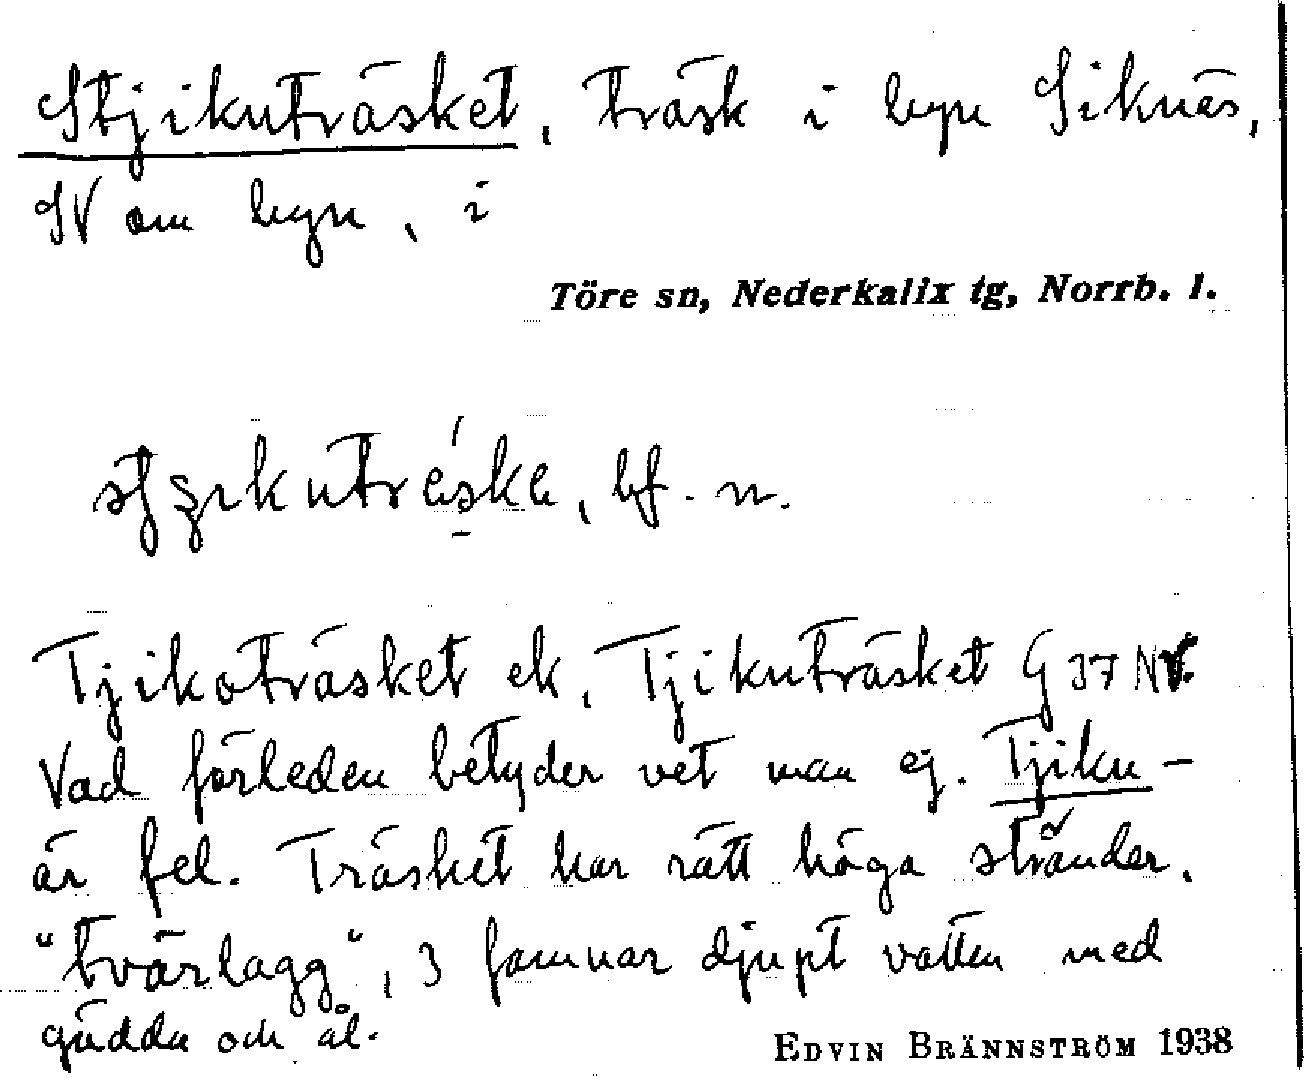 Stjikuträsket, träsk i byn Siknäs,
SV om byn, i
Töre sn, Nederkalix tg, Norrb. l.
bf. n.
Tjikoträsket ek, Tjikuträsket G 37 NV.
Vad förleden betyder vet man ej. Tjiku-
är fel. Träsket har rätt höga stränder,
"tvärlagg", 3 famnar djupt vatten med
gädda och ål.
EDVIN BRÄNNSTRÖM 1938